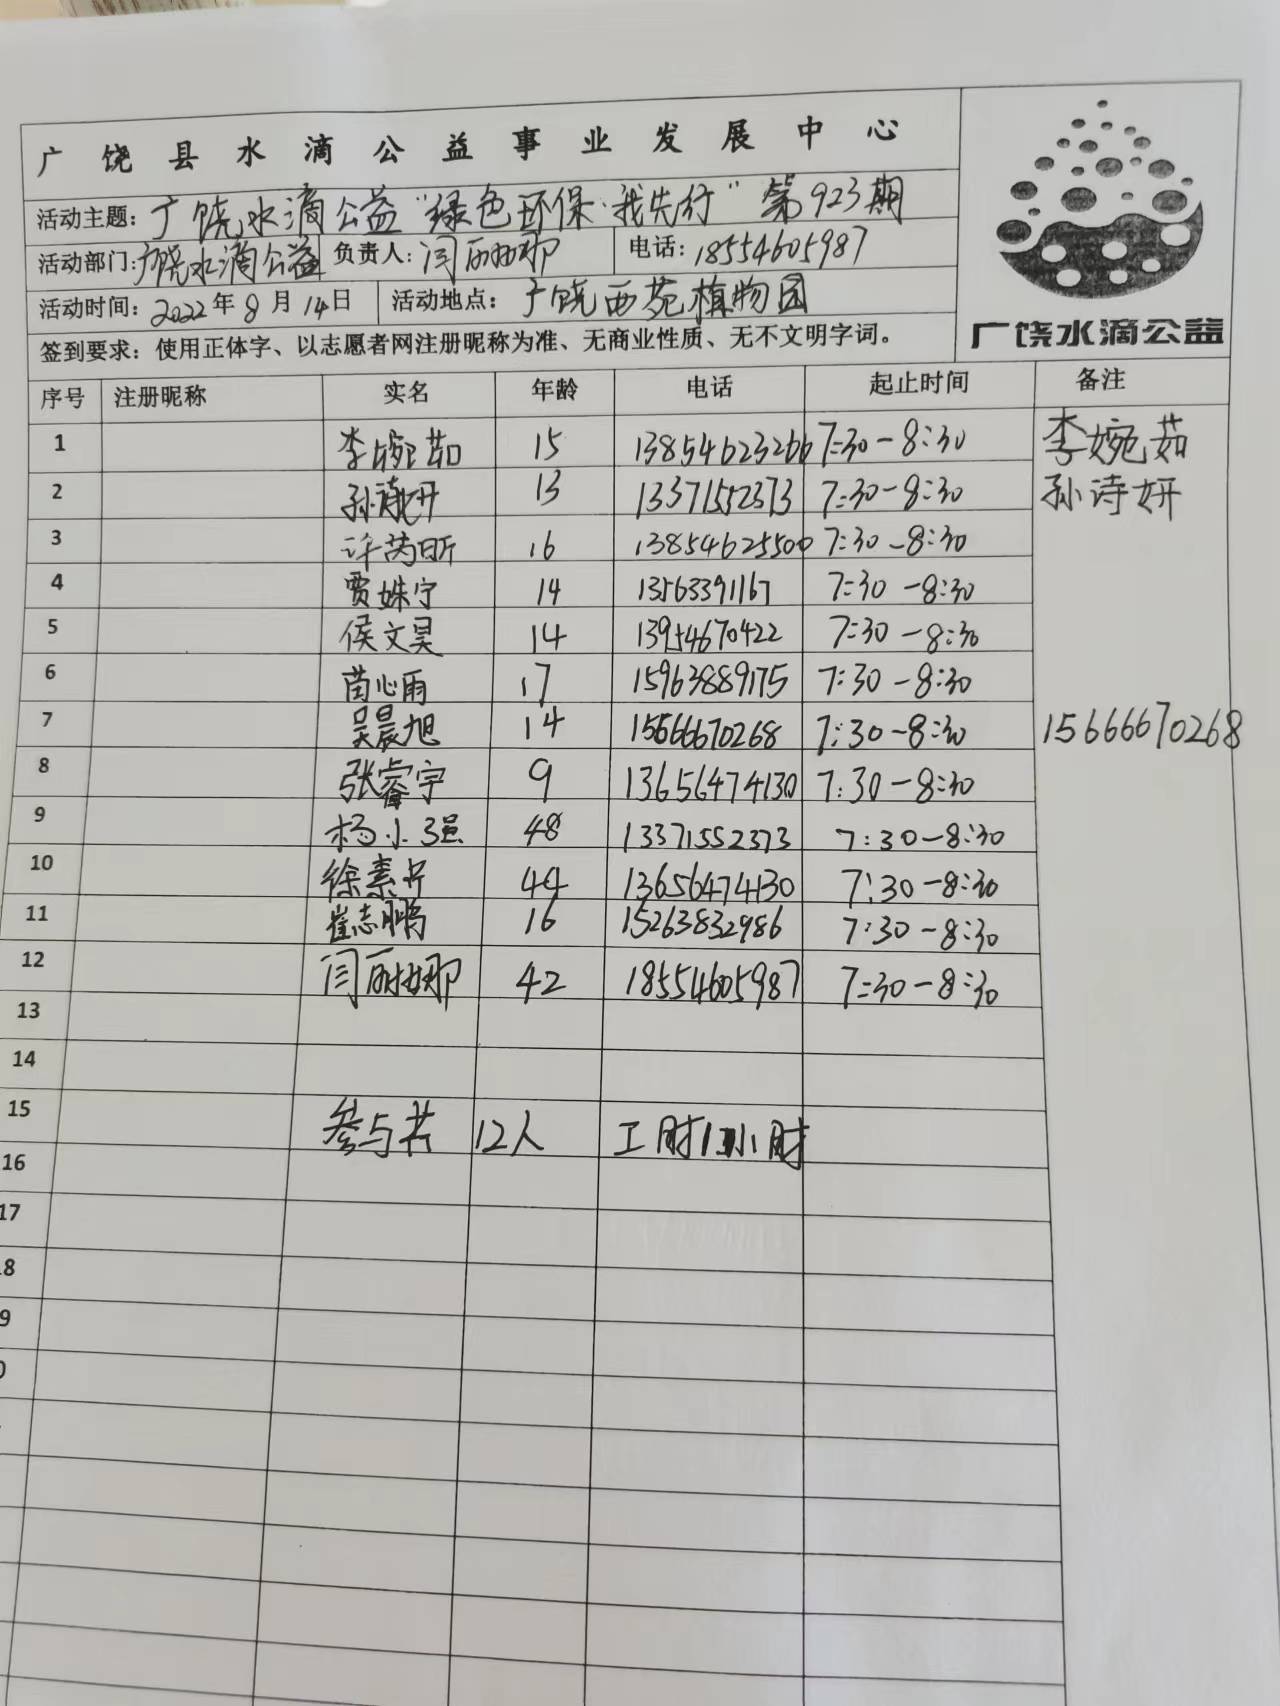 广饶县水滴公益事业发展中心
活动主题：广饶水滴公益“绿色环保·我先行”第923期
活动部门：广饶水滴公益 负责人：闫丽娜 电话：18554605987
活动时间：2022年8月14日 活动地点：广饶西苑植物园
签到要求：使用正体字、以志愿者网注册昵称为准、无商业性质、无不文明字词。
广饶水滴公益
序号 注册昵称 实名 年龄 电话 起止时间 备注
1 李婉茹 15 13854623266 7:30-8:30 李婉茹
2 孙诗妍 13 13371552373 7:30-8:30 孙诗妍
3 许芮昕 16 13854625500 7:30-8:30
4 贾姝宁 14 13563391167 7:30-8:30
5 侯文昊 14 13954670422 7:30-8:30
6 苗心雨 17 15963889175 7:30-8:30
7 吴晨旭 14 15666670268 7:30-8:30 15666670268
8 张睿宇 9 13656474130 7:30-8:30
9 杨小强 48 13371552373 7:30-8:30
10 徐素 44 13656474130 7:30-8:30
11 崔志鹏 16 15263832986 7:30-8:30
12 闫丽娜 42 18554605987 7:30-8:30
13
14
15 参与共 12人 工时1小时
16
17